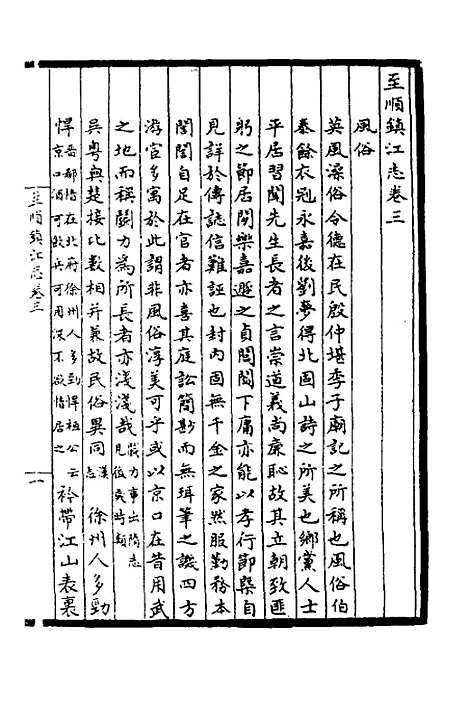 至順鎮江志卷三
風俗
英風澡俗令德在民殷仲堪季子廟記之所稱也風俗伯
泰餘衣冠永嘉後劉夢得北固山詩之所美也鄉黨人士
平居習聞先生長者之言崇道義尚廉恥故其立朝致匪
躬之節居閑樂嘉遯之貞閭閻下庸亦能以孝行節槩自
見詳於傳誌信難誣也封內固無千金之家然服勤務本
閭閻自足在官者亦喜其庭訟簡尠而無珥筆之譏四方
游宦多寓於此謂非風俗淳美可乎或以京口在昔用武
之地而稱鬭力為所長者亦淺淺哉戲力事出隋志見後歲時類
吳粤與楚接比數相并兼故民俗異同漢志 徐州人多勁
悍晉都愔在北府徐州人多勁悍桓公云京口酒可飲兵可用深不欲愔居之 衿帶江山表裏
至順鎮江志卷三
一